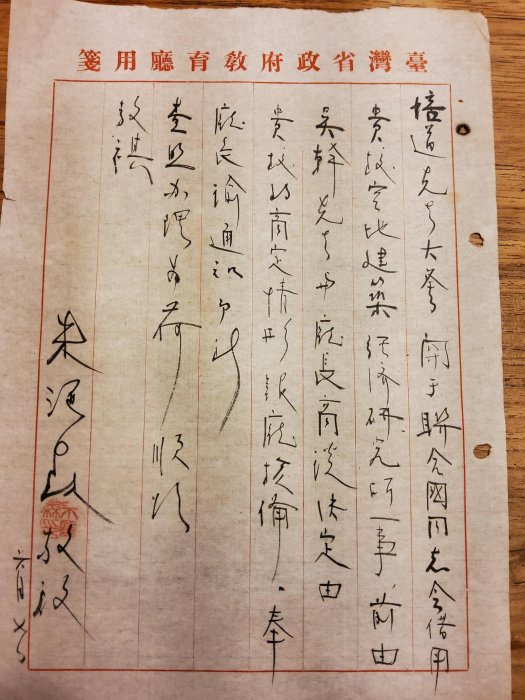 臺灣省政府教育廳用箋
培道先生大鑒 關于聯合國同志會借用
貴校空地建築經濟研究所一事，前由
吳幹先生與廳長商談決定由
貴校將商定情形報廳核備，奉
廳長諭通知
查照辦理為荷 順頌
教祺
朱 敬啟
六月